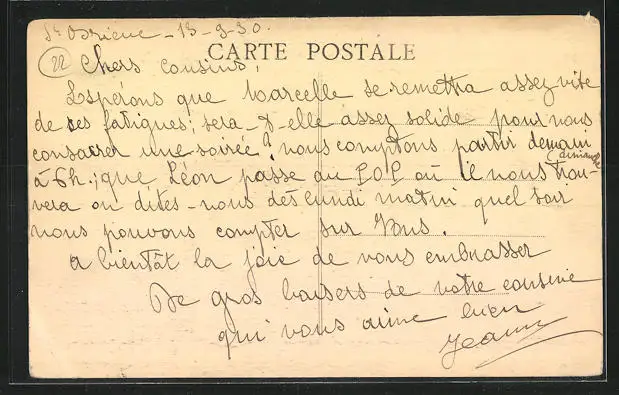 St Brieuc - 13-9-30.
CARTE POSTALE
22 Chers cousins,
Espérons que Marcelle se remettra assez vite
de ses fatigues; sera-t-elle assez solide pour nous
consacrer une soirée? nous comptons partir demain
(dimanche
à 6h.; que Léon passe au P.O.P. où il nous trou-
vera ou dites-nous dès lundi matin quel soir
nous pouvons compter sur Vous.
a bientôt la joie de vous embrasser
De gros baisers de votre cousine
qui vous aime bien
Jeanne